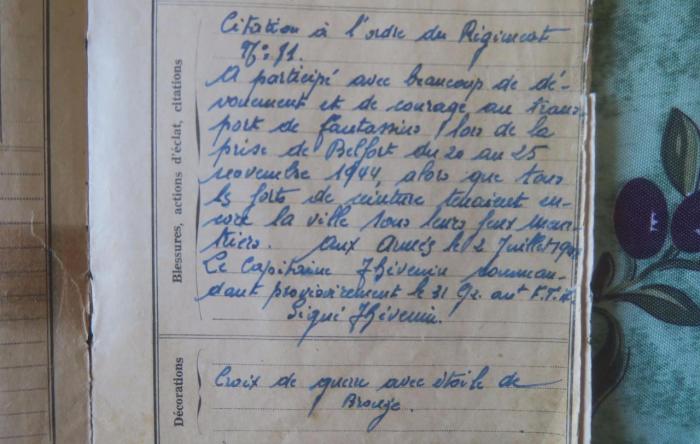 Blessures, actions d'éclat, citations
Citation à l'ordre du Régiment
N° 71.
A participé avec beaucoup de dé-
vouement et de courage au trans
port de fantassins lors de la
prise de Belfort du 20 au 25
novembre 1944, alors que tous
les forts de ceinture tenaient en-
core la ville sous leurs feux meur-
triers. Aux Armés le 2 Juillet
Le Capitaine Thévenin comman-
dant provisoirement le 31
Signé Thévenin.
Décorations
Croix de guerre avec étoile de
Bronze.